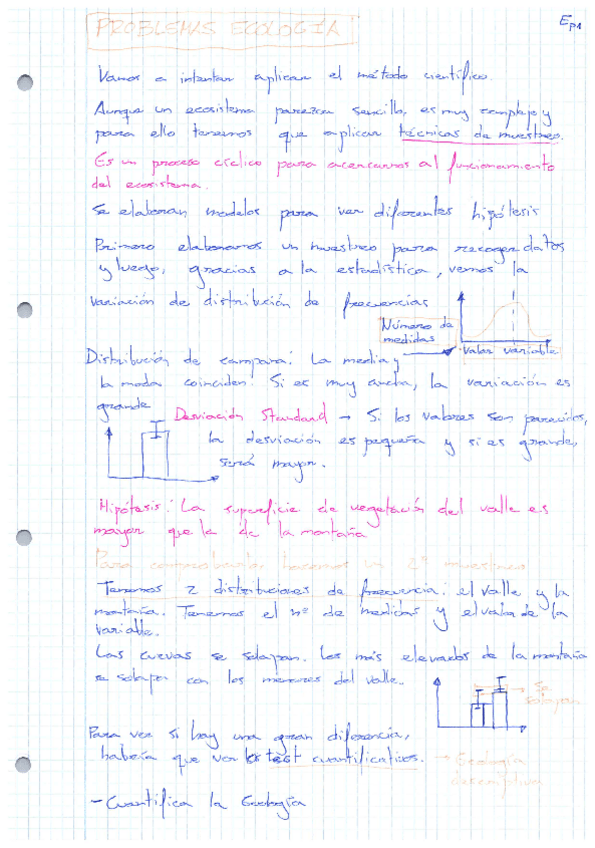 PROBLEMAS ECOLOGÍA
Ep1
Vamos a intentar aplicar el método científico.
Aunque un ecosistema parezca sencillo, es muy complejo y
para ello tenemos que aplicar técnicas de muestreo.
Es un proceso cíclico para acercarnos al funcionamiento
del ecosistema.
Se elaboran modelos para ver diferentes hipótesis
Primero elaboramos un muestreo para recoger datos
y luego, gracias a la estadística, vemos la
variación de distribución de frecuencias
Número de
medidas
Valor variable
Distribución de campana: La media y
la moda coinciden. Si es muy ancha, la variación es
grande
Desviación Standard → Si los valores son parecidos,
la desviación es pequeña y si es grande,
será mayor.
Hipótesis: La superficie de vegetación del valle es
mayor que la de la montaña
Para comprobarlo hacemos un 2º muestreo
Tenemos 2 distribuciones de frecuencia: el valle y la
montaña. Tenemos el nº de medidas y el valor de la
variable.
Las curvas se solapan. Los más elevados de la montaña
se solapan con los menores del valle.
Se
solapan
Para ver si hay una gran diferencia,
habría que ver los test cuantificativos. → Ecología
descriptiva
- Cuantifica la Ecología